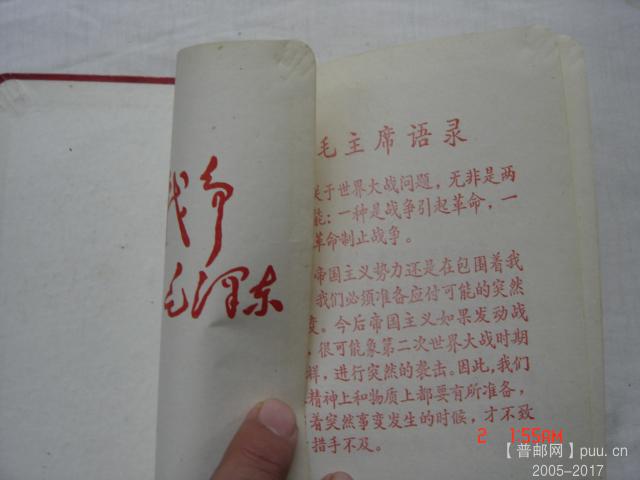 战争
毛泽东
毛主席语录
关于世界大战问题，无非是两
能：一种是战争引起革命，一
革命制止战争。
帝国主义势力还是在包围着我
我们必须准备应付可能的突然
变。今后帝国主义如果发动战
，很可能象第二次世界大战时期
样，进行突然的袭击。因此，我们
精神上和物质上都要有所准备，
着突然事变发生的时候，才不致
措手不及。
2 1:55AM
【普邮网】puu.cn
2005-2017